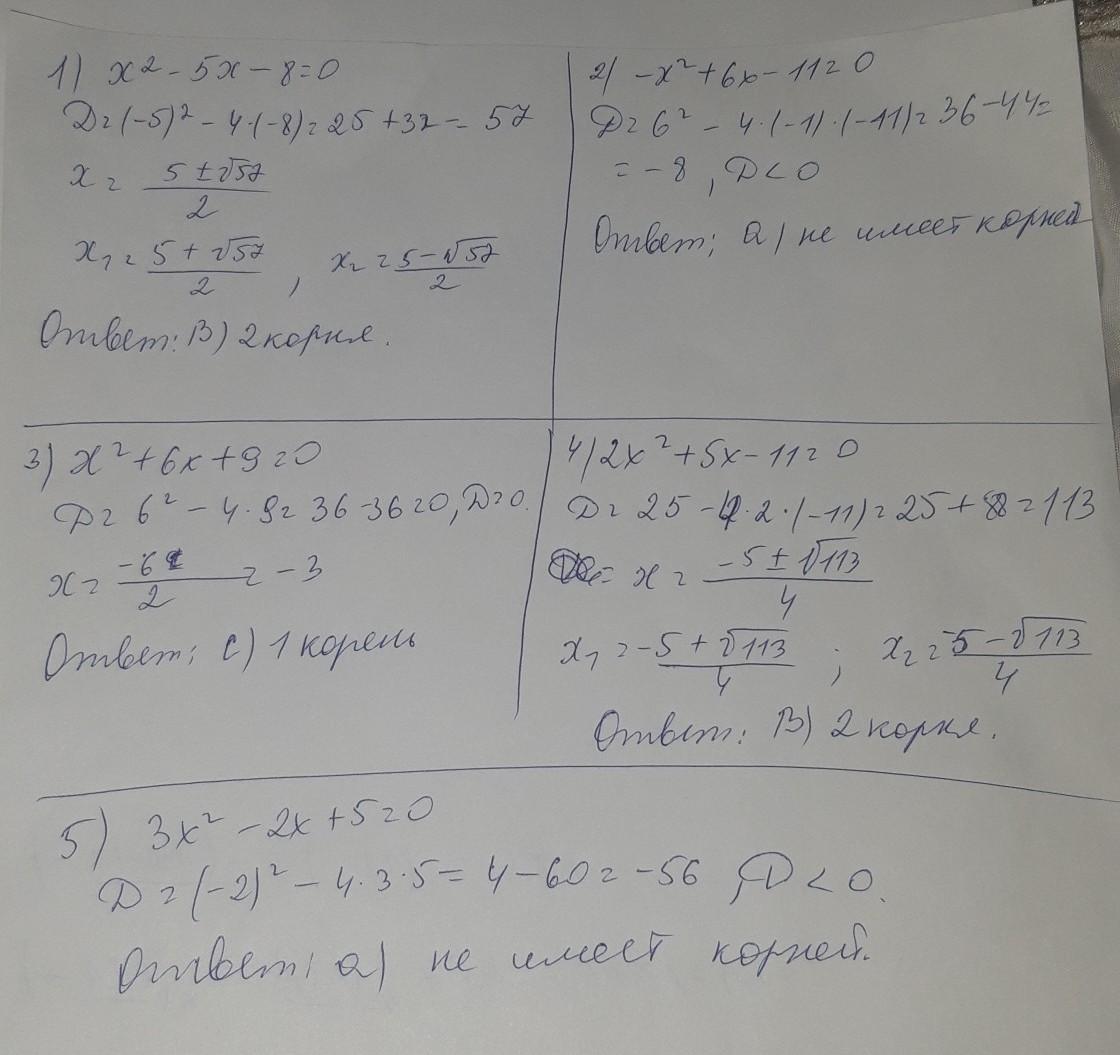 1) x² - 5x - 8 = 0
D = (-5)² - 4·(-8) = 25 + 32 = 57
x = (5 ± √57)/2
x₁ = (5 + √57)/2 , x₂ = (5 - √57)/2
Ответ: В) 2 корня.
2) -x² + 6x - 11 = 0
D = 6² - 4·(-1)·(-11) = 36 - 44 =
= -8 , D < 0
Ответ: а) не имеет корней
3) x² + 6x + 9 = 0
D = 6² - 4·9 = 36 - 36 = 0, D = 0.
x = -6/2 = -3
Ответ: С) 1 корень
4) 2x² + 5x - 11 = 0
D = 25 - 4·2·(-11) = 25 + 88 = 113
x = (-5 ± √113)/4
x₁ = (-5 + √113)/4 ; x₂ = (-5 - √113)/4
Ответ: В) 2 корня.
5) 3x² - 2x + 5 = 0
D = (-2)² - 4·3·5 = 4 - 60 = -56 , D < 0.
Ответ: а) не имеет корней.